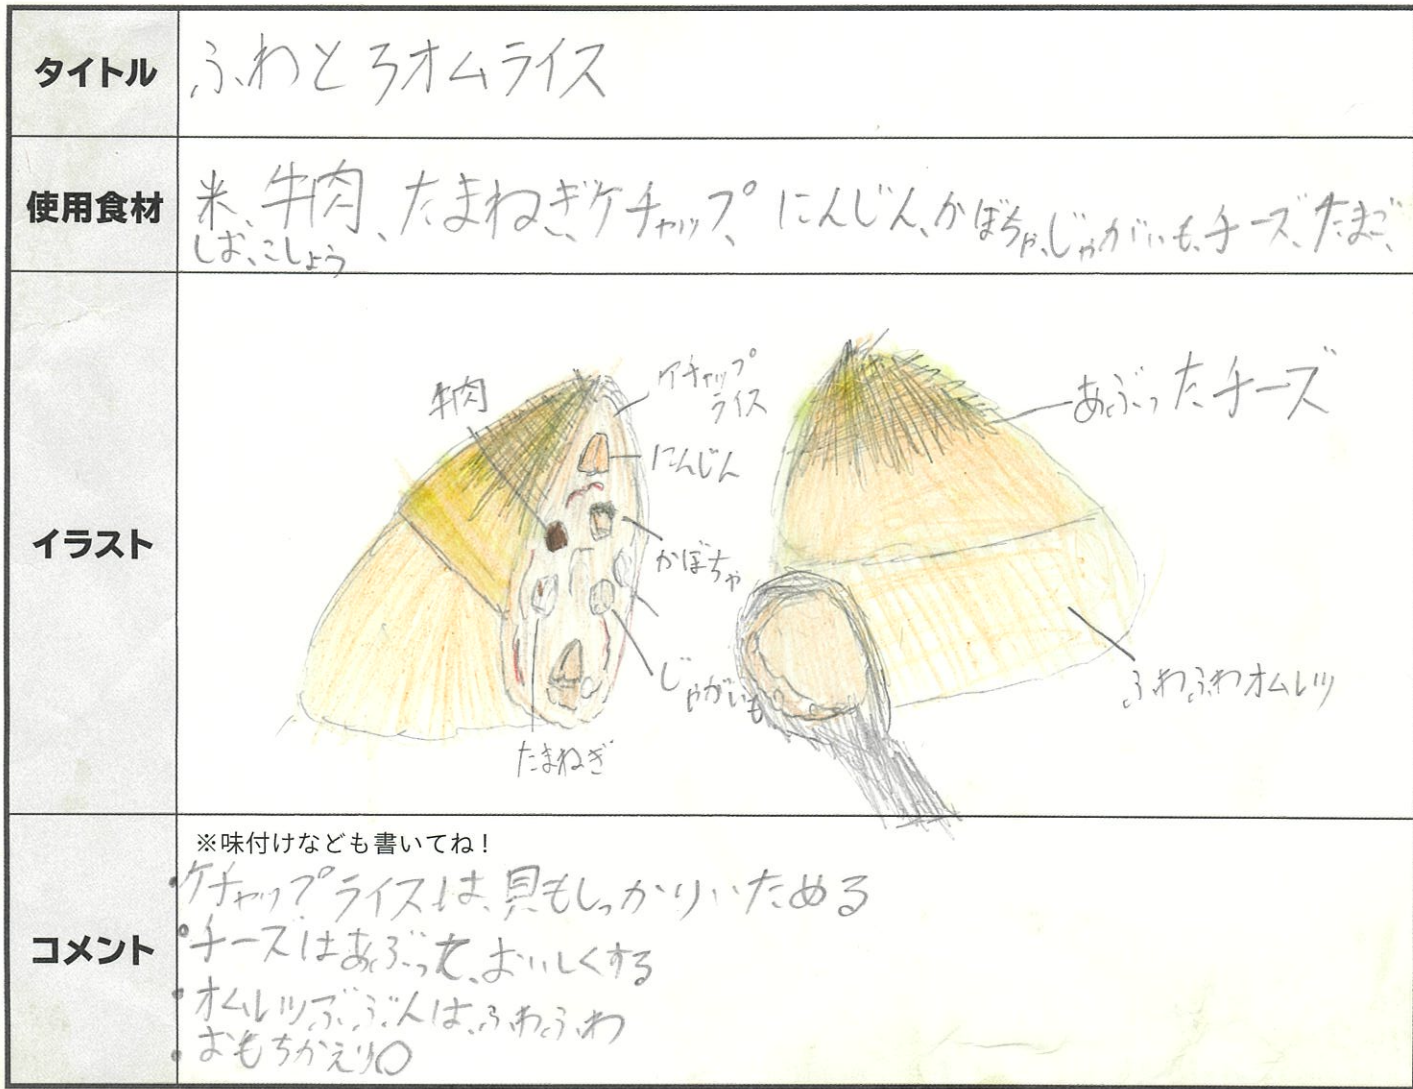 タイトル
ふわとろオムライス
使用食材
米、牛肉、たまねぎ、ケチャップ、にんじん、かぼちゃ、じゃがいも、チーズ、たまご、
しお、こしょう
イラスト
牛肉
ケチャップ
ライス
にんじん
かぼちゃ
じゃがいも
たまねぎ
あぶったチーズ
ふわふわオムレツ
コメント
※味付けなども書いてね!
・ケチャップライスは、具もしっかりいためる
・チーズはあぶって、おいしくする
・オムレツぶぶんは、ふわふわ
・おもちかえり〇